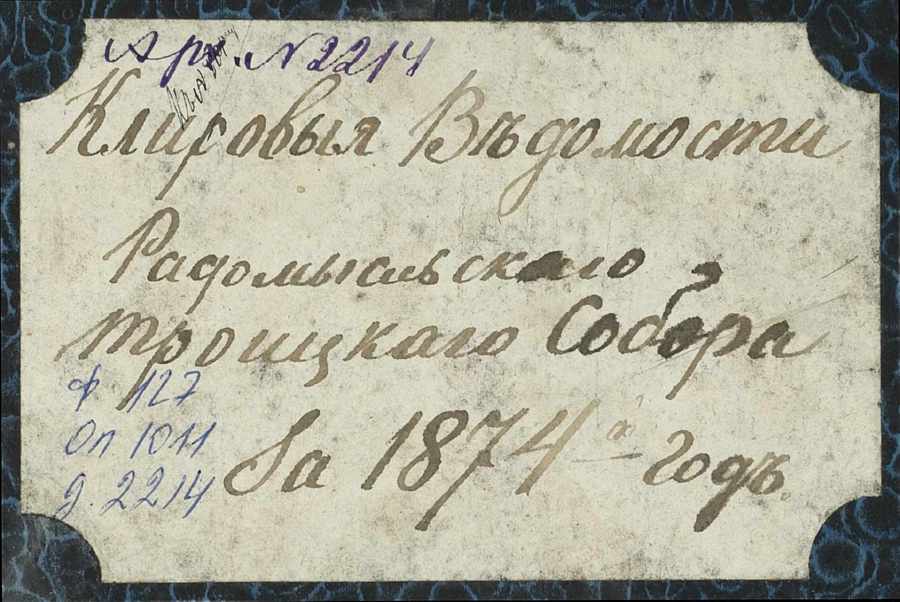 Арх. N 2214
Клировыя Вѣдомости
Радомысльскаго
троицкаго Собора
За 1874й годъ.
ф 127
Оп 1011
д. 2214